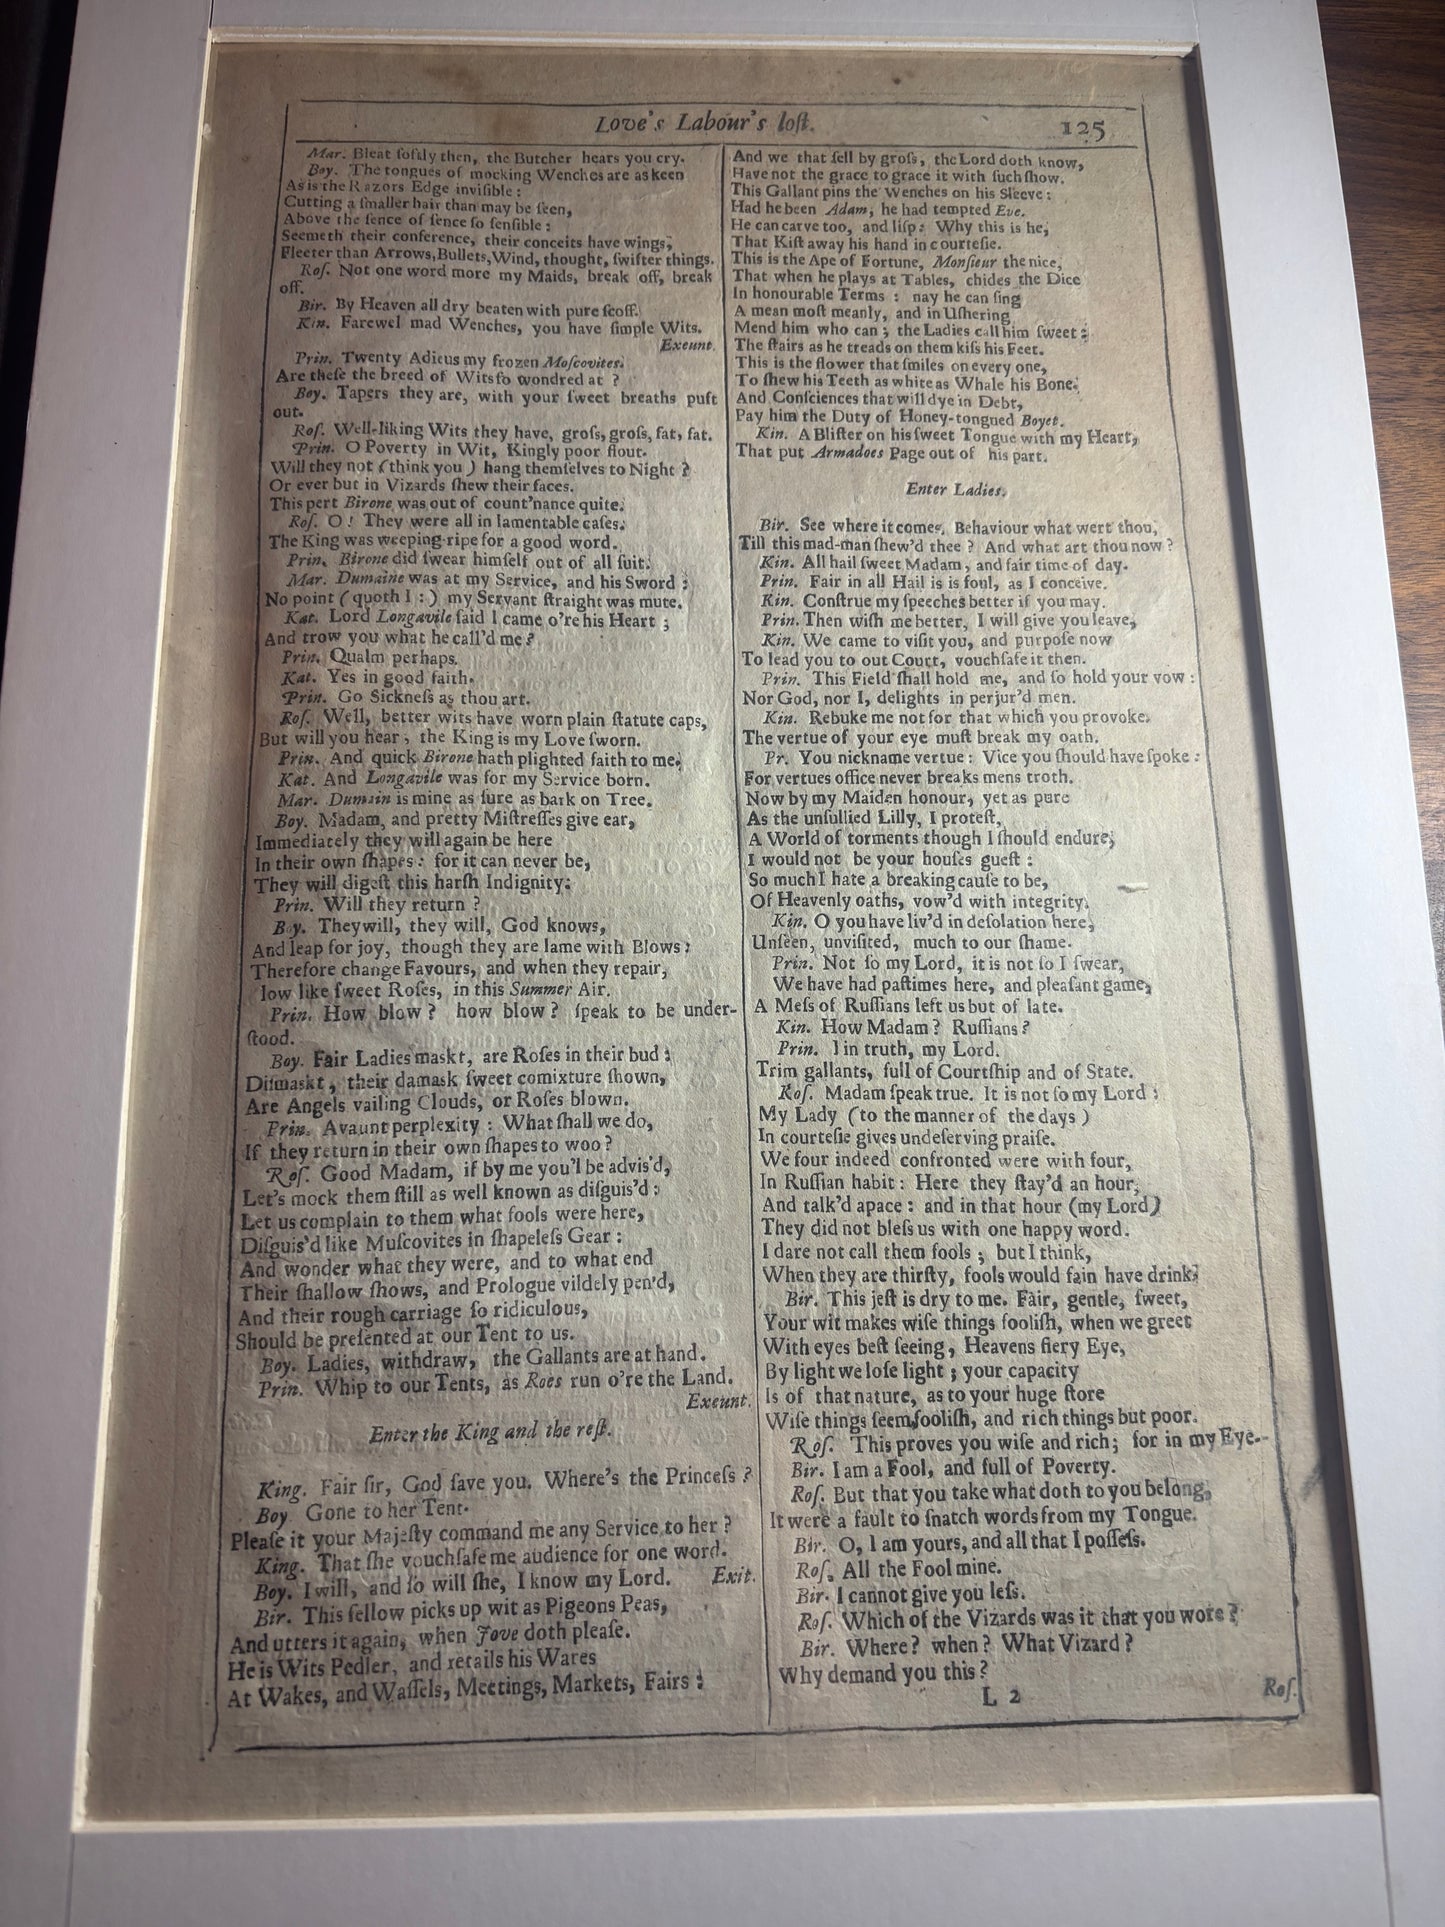 Love's Labour's loſt.
125
Mar. Bleat ſoftly then, the Butcher hears you cry.
Boy. The tongues of mocking Wenches are as keen
As is the Razors Edge inviſible:
Cutting a ſmaller hair than may be ſeen,
Above the ſence of ſence ſo ſenſible:
Seemeth their conference, their conceits have wings,
Fleeter than Arrows, Bullets, Wind, thought, ſwifter things.
Roſ. Not one word more my Maids, break off, break
off.
Bir. By Heaven all dry beaten with pure ſcoff.
Kin. Farewel mad Wenches, you have ſimple Wits.
Exeunt.
Prin. Twenty Adieus my frozen Moſcovites.
Are theſe the breed of Wits ſo wondred at?
Boy. Tapers they are, with your ſweet breaths puft
out.
Roſ. Well-liking Wits they have, groſs, groſs, fat, fat.
Prin. O Poverty in Wit, Kingly poor flout.
Will they not (think you) hang themſelves to Night?
Or ever but in Vizards ſhew their faces.
This pert Birone was out of count'nance quite.
Roſ. O! They were all in lamentable caſes.
The King was weeping-ripe for a good word.
Prin. Birone did ſwear himſelf out of all ſuit.
Mar. Dumaine was at my Service, and his Sword:
No point (quoth I:) my Servant ſtraight was mute.
Kat. Lord Longavile ſaid I came o're his Heart;
And trow you what he call'd me?
Prin. Qualm perhaps.
Kat. Yes in good faith.
Prin. Go Sickneſs as thou art.
Roſ. Well, better wits have worn plain ſtatute caps,
But will you hear, the King is my Love ſworn.
Prin. And quick Birone hath plighted faith to me.
Kat. And Longavile was for my Service born.
Mar. Dumain is mine as ſure as bark on Tree.
Boy. Madam, and pretty Miſtreſſes give ear,
Immediately they will again be here
In their own ſhapes: for it can never be,
They will digeſt this harſh Indignity:
Prin. Will they return?
Boy. They will, they will, God knows,
And leap for joy, though they are lame with Blows:
Therefore change Favours, and when they repair,
low like ſweet Roſes, in this Summer Air.
Prin. How blow? how blow? ſpeak to be under-
ſtood.
Boy. Fair Ladies maskt, are Roſes in their bud:
Diſmaskt, their damask ſweet comixture ſhown,
Are Angels vailing Clouds, or Roſes blown.
Prin. Avaunt perplexity: What ſhall we do,
If they return in their own ſhapes to woo?
Roſ. Good Madam, if by me you'l be advis'd,
Let's mock them ſtill as well known as diſguis'd:
Let us complain to them what fools were here,
Diſguis'd like Muſcovites in ſhapeleſs Gear:
And wonder what they were, and to what end
Their ſhallow ſhows, and Prologue vildely pen'd,
And their rough carriage ſo ridiculous,
Should be preſented at our Tent to us.
Boy. Ladies, withdraw, the Gallants are at hand.
Prin. Whip to our Tents, as Roes run o're the Land.
Exeunt.
Enter the King and the reſt.
King. Fair ſir, God ſave you. Where's the Princeſs?
Boy. Gone to her Tent.
Pleaſe it your Majeſty command me any Service to her?
King. That ſhe vouchſafe me audience for one word.
Boy. I will, and ſo will ſhe, I know my Lord. Exit.
Bir. This fellow picks up wit as Pigeons Peas,
And utters it again, when Jove doth pleaſe.
He is Wits Pedler, and retails his Wares
At Wakes, and Waſſels, Meetings, Markets, Fairs:
And we that ſell by groſs, the Lord doth know,
Have not the grace to grace it with ſuch ſhow.
This Gallant pins the Wenches on his Sleeve:
Had he been Adam, he had tempted Eve.
He can carve too, and liſp: Why this is he,
That Kiſt away his hand in courteſie.
This is the Ape of Fortune, Monſieur the nice,
That when he plays at Tables, chides the Dice
In honourable Terms: nay he can ſing
A mean moſt meanly, and in Uſhering
Mend him who can; the Ladies call him ſweet:
The ſtairs as he treads on them kiſs his Feet.
This is the flower that ſmiles on every one,
To ſhew his Teeth as white as Whale his Bone.
And Conſciences that will dye in Debt,
Pay him the Duty of Honey-tongued Boyet.
Kin. A Bliſter on his ſweet Tongue with my Heart,
That put Armadoes Page out of his part.
Enter Ladies.
Bir. See where it comes, Behaviour what wert thou,
Till this mad-man ſhew'd thee? And what art thou now?
Kin. All hail ſweet Madam, and fair time of day.
Prin. Fair in all Hail is is foul, as I conceive.
Kin. Conſtrue my ſpeeches better if you may.
Prin. Then wiſh me better, I will give you leave,
Kin. We came to viſit you, and purpoſe now
To lead you to out Court, vouchſafe it then.
Prin. This Field ſhall hold me, and ſo hold your vow:
Nor God, nor I, delights in perjur'd men.
Kin. Rebuke me not for that which you provoke.
The vertue of your eye muſt break my oath.
Pr. You nickname vertue: Vice you ſhould have ſpoke:
For vertues office never breaks mens troth.
Now by my Maiden honour, yet as pure
As the unſullied Lilly, I proteſt,
A World of torments though I ſhould endure,
I would not be your houſes gueſt:
So much I hate a breaking cauſe to be,
Of Heavenly oaths, vow'd with integrity.
Kin. O you have liv'd in deſolation here,
Unſeen, unviſited, much to our ſhame.
Prin. Not ſo my Lord, it is not ſo I ſwear,
We have had paſtimes here, and pleaſant game,
A Meſs of Ruſſians left us but of late.
Kin. How Madam? Ruſſians?
Prin. I in truth, my Lord.
Trim gallants, full of Courtſhip and of State.
Roſ. Madam ſpeak true. It is not ſo my Lord:
My Lady (to the manner of the days)
In courteſie gives undeſerving praiſe.
We four indeed confronted were with four,
In Ruſſian habit: Here they ſtay'd an hour,
And talk'd apace: and in that hour (my Lord)
They did not bleſs us with one happy word.
I dare not call them fools; but I think,
When they are thirſty, fools would fain have drink.
Bir. This jeſt is dry to me. Fair, gentle, ſweet,
Your wit makes wiſe things fooliſh, when we greet
With eyes beſt ſeeing, Heavens fiery Eye,
By light we loſe light; your capacity
Is of that nature, as to your huge ſtore
Wiſe things ſeem fooliſh, and rich things but poor.
Roſ. This proves you wiſe and rich; for in my Eye--
Bir. I am a Fool, and full of Poverty.
Roſ. But that you take what doth to you belong,
It were a fault to ſnatch words from my Tongue.
Bir. O, I am yours, and all that I poſſeſs.
Roſ. All the Fool mine.
Bir. I cannot give you leſs.
Roſ. Which of the Vizards was it that you wore?
Bir. Where? when? What Vizard?
Why demand you this?
L 2
Roſ.